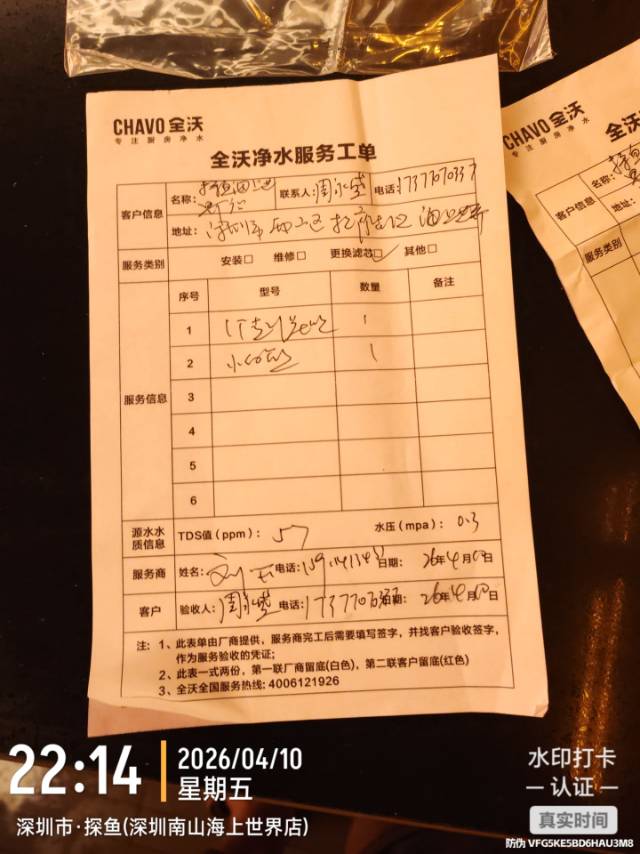 CHAVO 全沃
专注厨房净水
全沃净水服务工单
客户信息
名称:
联系人: 周永盛 电话:
地址: 深圳市南山区招商街道 海上世界
服务类别 安装□ 维修□ 更换滤芯☑ 其他□
服务信息
序号 型号 数量 备注
1 1
2 1
3
4
5
6
源水水质信息 TDS值(ppm): 57 水压(mpa) 0.3
服务商 姓名: 刘 电话: 日期: 26年4月10日
客户 验收人: 周永盛 电话: 日期: 26年4月10日
注: 1、此表单由厂商提供，服务商完工后需要填写签字，并找客户验收签字，
作为服务验收的凭证;
2、此表一式两份，第一联厂商留底(白色)，第二联客户留底(红色)
3、全沃全国服务热线: 4006121926
CHAVO 全沃
专注厨房净水
全沃
客户信息
名称:
地址:
服务类别
22:14
2026/04/10
星期五
深圳市·探鱼(深圳南山海上世界店)
水印打卡
认证
真实时间
防伪 VFG5KE5BD6HAU3M8